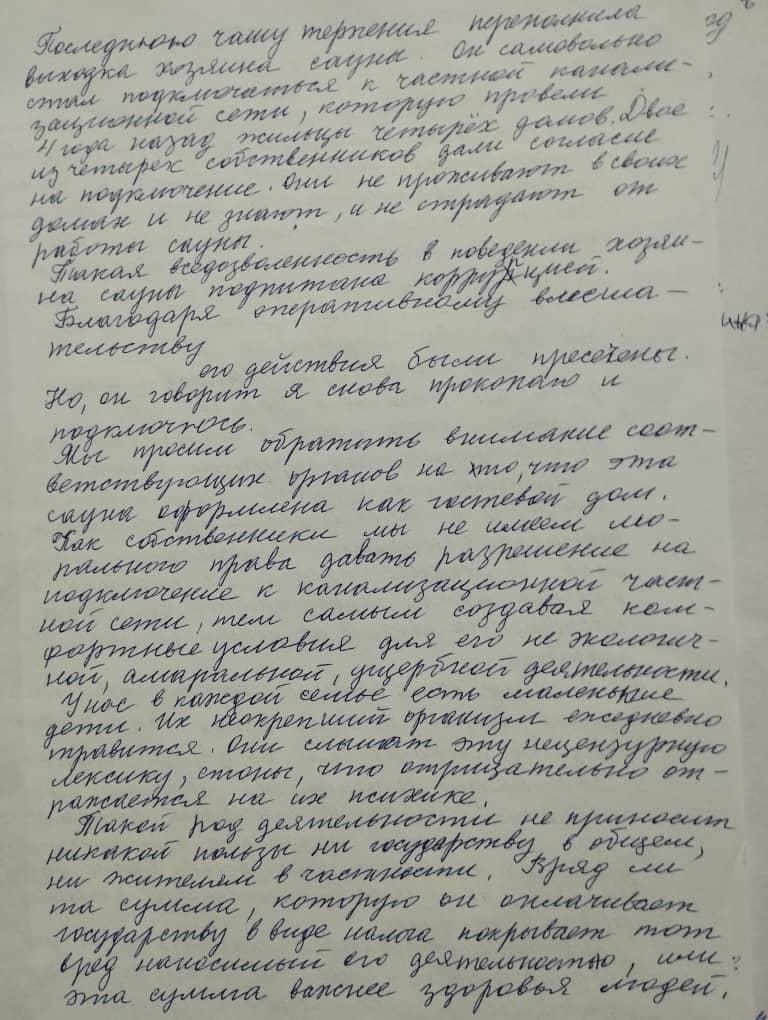 Последнюю чашу терпения переполнила
выходка хозяина сауны. Он самовольно
стал подключаться к частной канали-
зационной сети, которую провели
4 года назад жильцы четырёх домов. Двое
из четырех собственников дали согласие
на подключение. Они не проживают в своих
домах и не знают, и не страдают от
работы сауны.
Такая вседозволенность в поведении хозяи-
на сауны подпитана коррупцией.
Благодаря оперативному вмеша-
тельству
его действия были пресечены.
Но, он говорит я снова прокопаю и
подключюсь.
Мы просим обратить внимание соот-
ветствующих органов на то, что эта
сауна оформлена как гостевой дом.
Как собственники мы не имеем мо-
рального права давать разрешение на
подключение к канализационной част-
ной сети, тем самым создавая ком-
фортные условия для его не экологич-
ной, амаральной, ущербной деятельности.
У нас в каждой семье есть маленькие
дети. Их неокрепший организм ежедневно
травится. Они слышат эту нецензурную
лексику, стоны, что отрицательно от-
ражается на их психике.
Такой род деятельности не приносит
никакой пользы ни государству в общем,
ни жителям в частности. Вряд ли
та сумма, которую он оплачивает
государству в виде налога покрывает тот
вред наносимый его деятельностью, или
эта сумма важнее здоровья людей.